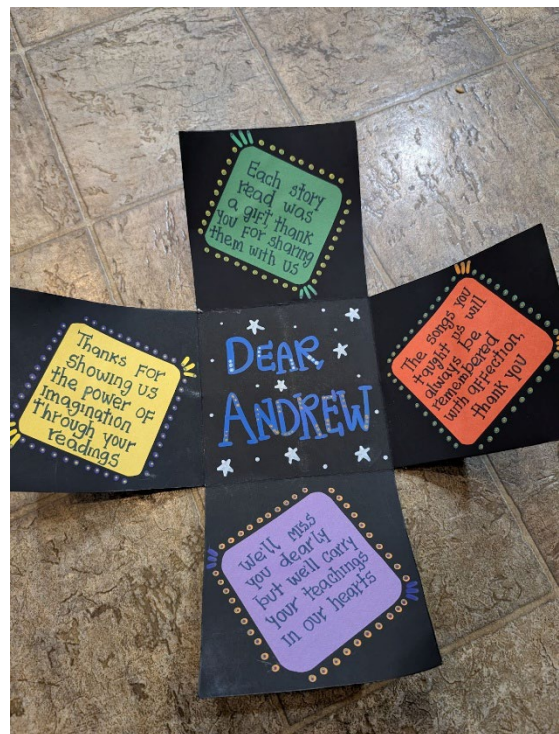 Each story
read was
a gift thank
you for sharing
them with us
Thanks for
showing us
the power of
Imagination
through your
readings
DEAR
ANDREW
The songs you
taught us will
always be
remembered
with affection,
thank you
We'll miss
you dearly
but we'll carry
your teachings
in our hearts